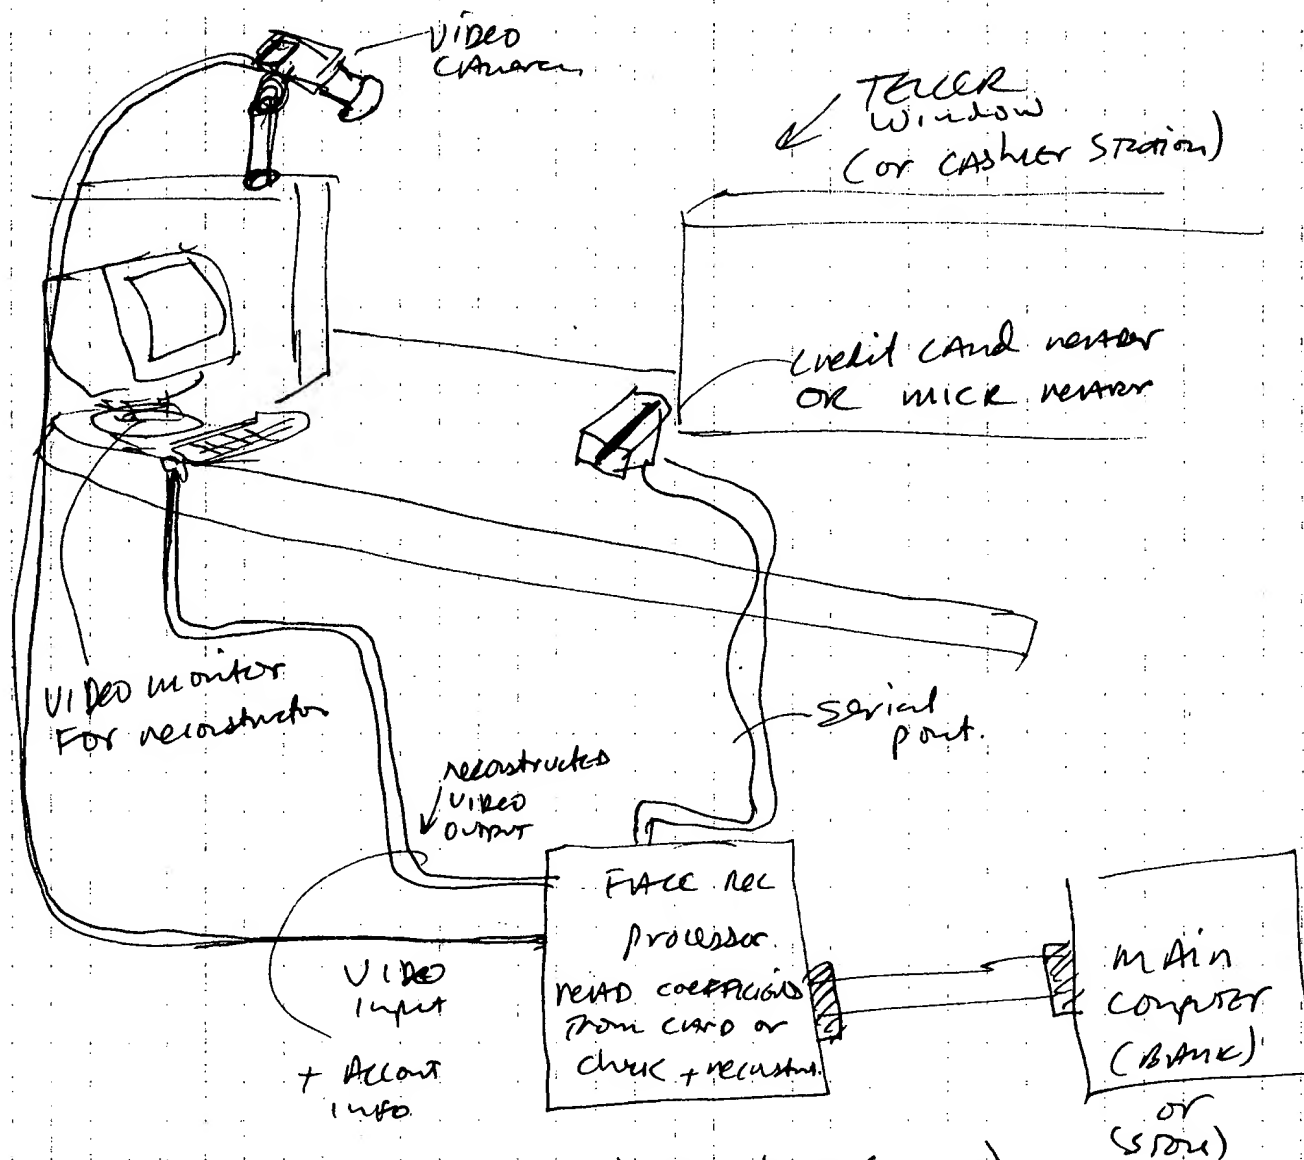 VIDEO
CAMERA
TELLER
WINDOW
(or CASHIER STATION)
Credit CARD reader
OR MICR reader
VIDEO monitor
For reconstruction
Serial
port.
reconstructed
VIDEO
OUTPUT
FACE Rec
processor.
READ COEFFICIENTS
From CARD or
Check + reconstruct.
VIDEO
Input
+ Account
INFO
MAIN
COMPUTER
(BANK)
or
(STORE)